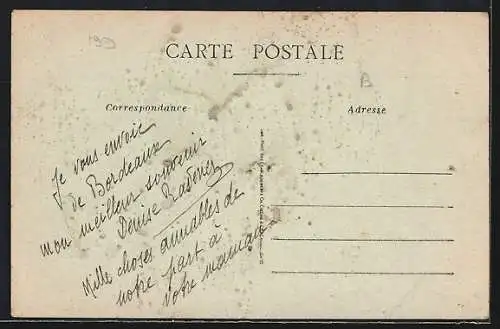 CARTE POSTALE
B
Correspondance
Adresse
Je vous envoie
de Bordeaux
mon meilleur souvenir
Denise
Mille choses aimables de
notre part à
votre maman